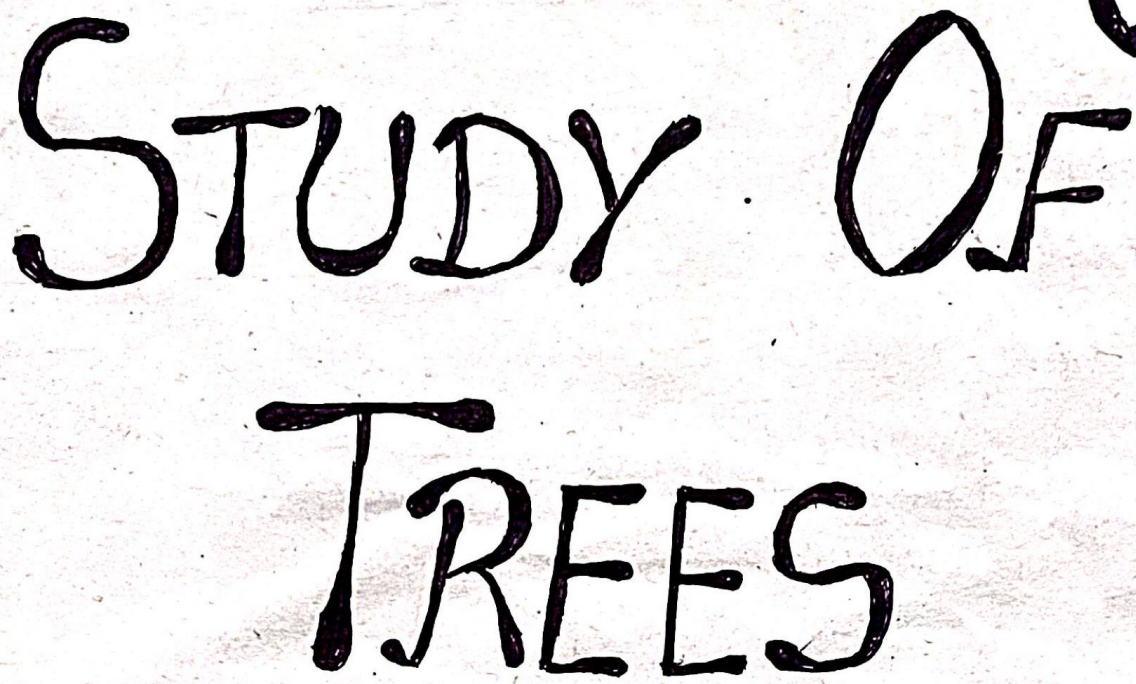 STUDY OF
TREES